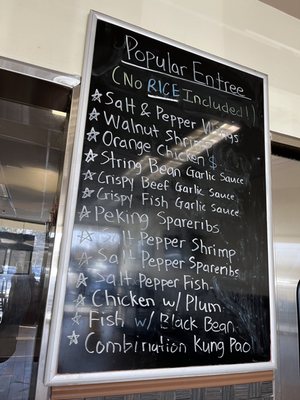 Popular Entree
(No RICE Included!)
☆ Salt & Pepper Wings
☆ Walnut Shrimp
☆ Orange Chicken $
☆ String Bean Garlic Sauce
☆ Crispy Beef Garlic Sauce
☆ Crispy Fish Garlic Sauce
☆ Peking Spareribs
☆ Salt Pepper Shrimp
☆ Salt Pepper Spareribs
☆ Salt Pepper Fish
☆ Chicken w/ Plum
☆ Fish w/ Black Bean
☆ Combination Kung Pao